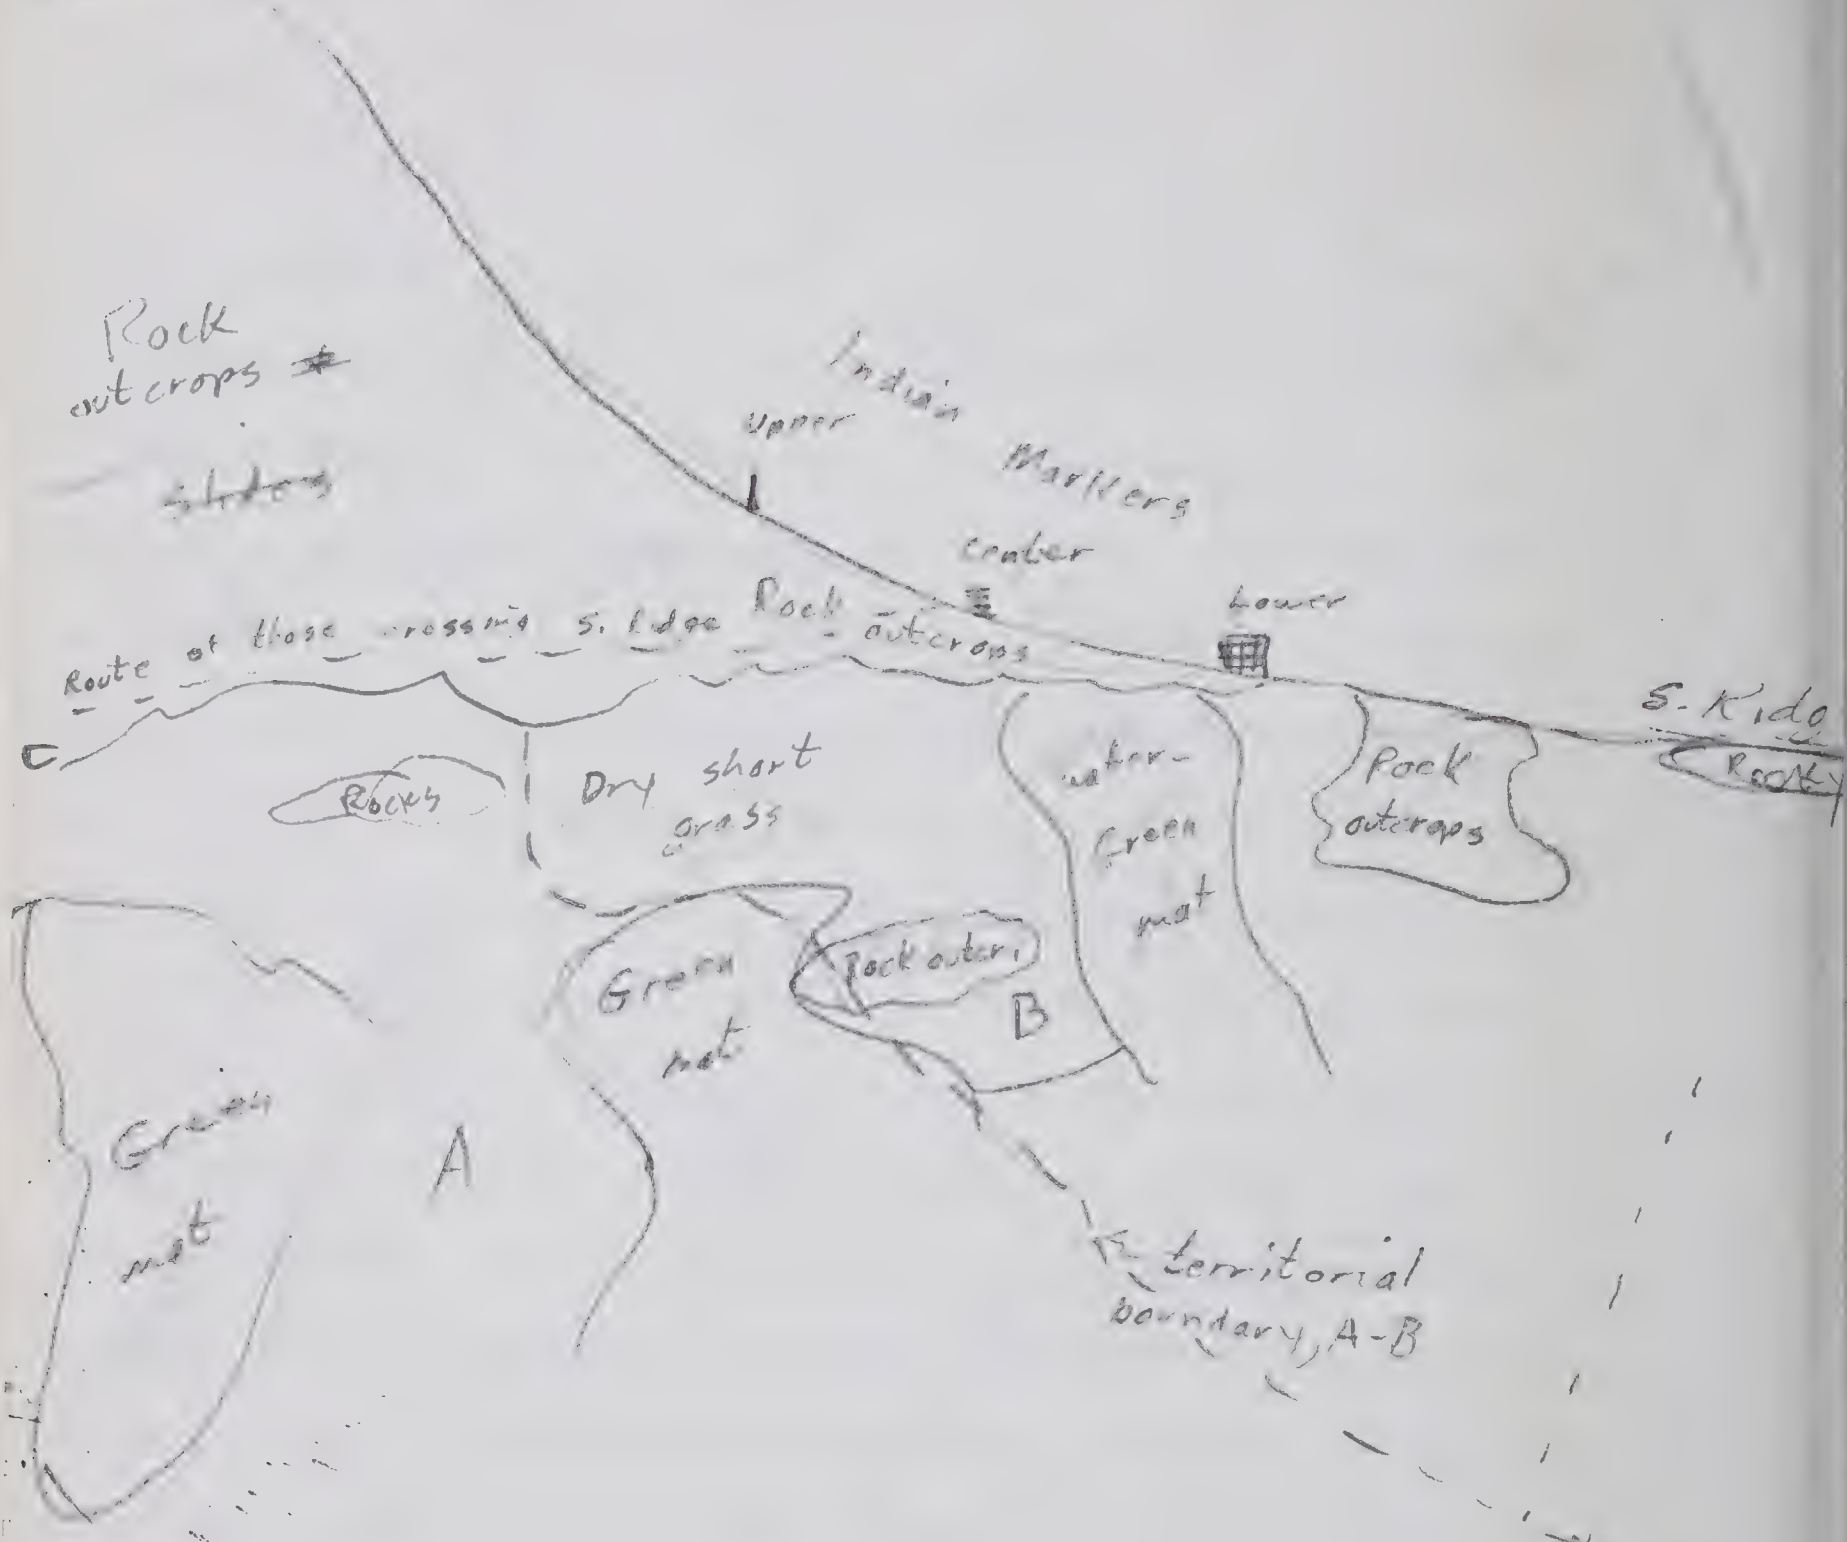 Rock
outcrops
slides
Indian
Markers
Upper
Center
Lower
Route of those crossing S. Ridge
Rock
outcrops
S. Ridg
Rocky
C
Rocks
Dry short
grass
water-
Green
mat
Rock
outcrops
Green
mat
Rock outcr.
B
Green
mat
A
territorial
boundary, A-B